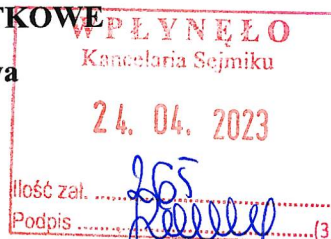 TKOWE
WPŁYNĘŁO
Kancelaria Sejmiku
va
24. 04. 2023
Ilość zał. ..........
Podpis ..........(3